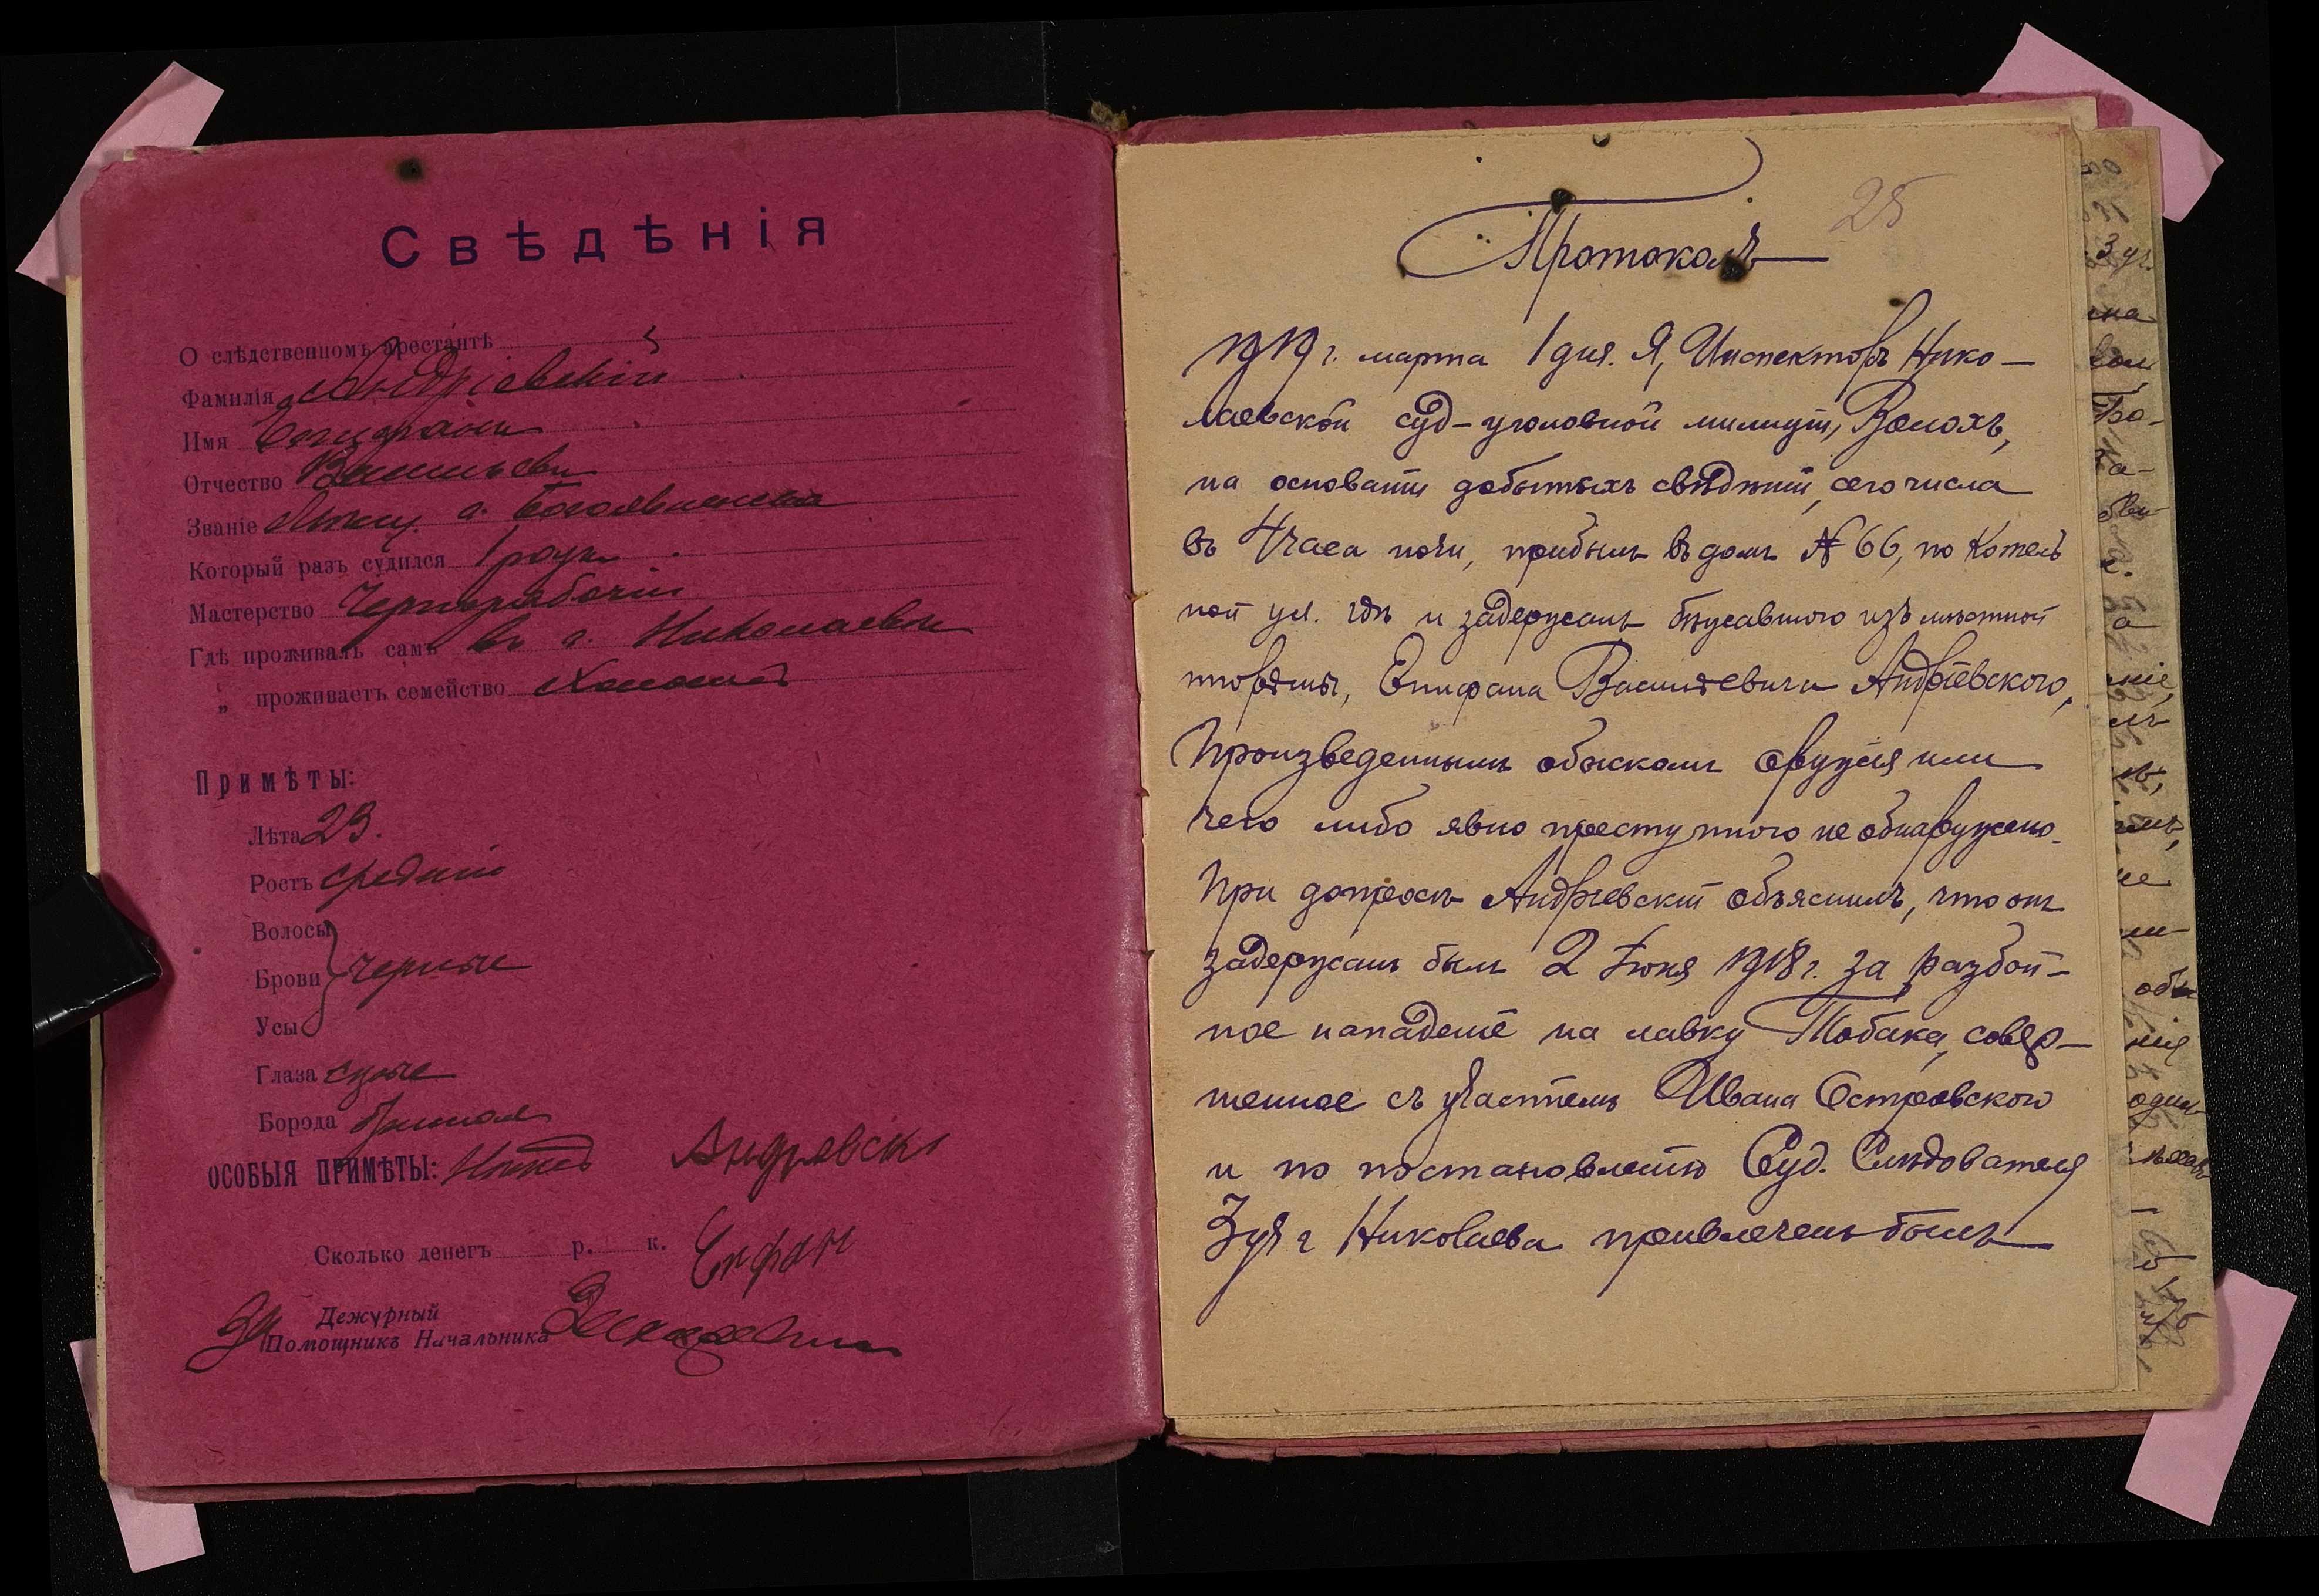 Свѣдѣнія
О слѣдственномъ арестантѣ
Фамилія Андріевскій
Имя Епифанъ
Отчество Васильевъ
Званіе с. Богоявленска
Который разъ судился 1 разъ
Мастерство Чернорабочій
Гдѣ проживалъ самъ въ г. Николаевѣ
„ проживаетъ семейство Холостъ
Примѣты:
Лѣта 23.
Ростъ средній
Волосы
Брови черные
Усы
Глаза сѣрые
Борода
ОСОБЫЯ ПРИМѢТЫ: Нѣтъ Андрявски
Сколько денегъ р. к. Епфан
Дежурный
Помощникъ Начальника
25
Протоколъ
1919 г. марта 1 дня. Я, Инспекторъ Нико-
лаевской суд-уголовной милиціи, Волохъ,
на основаніи добытыхъ свѣдѣній, сего числа
въ 4 часа ночи, прибылъ въ домъ № 66, по Котель
ной ул. гдѣ и задержалъ бѣжавшого изъ мѣстной
тюрьмы, Епифана Васильевича Андріевского,
Произведеннымъ обыскомъ оружія или
чего либо явно преступного не обнаружено.
При допросѣ Андріевскій объяснилъ, что онъ
задержанъ былъ 2 Іюня 1918 г. за разбой-
ное нападеніе на лавку Тобака, совер-
шенное съ участіемъ Ивана Островского
и по постановленію Суд. Слѣдователя
3 уч г Николаева привлеченъ былъ